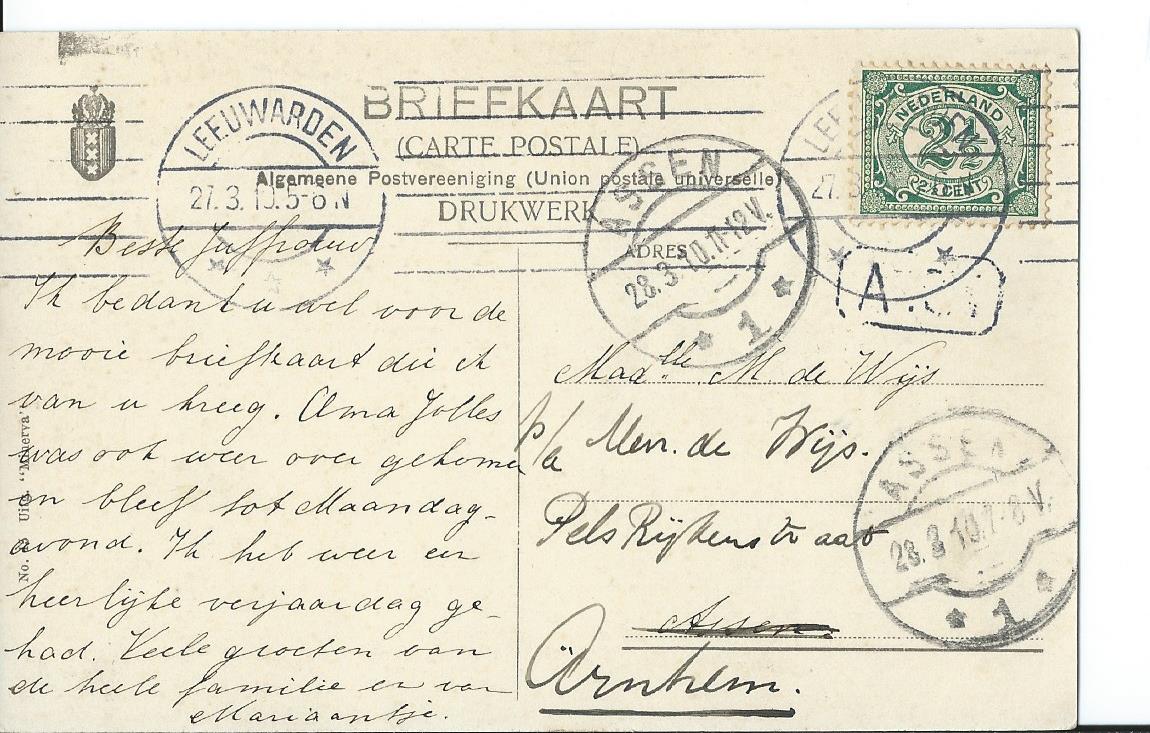 BRIEFKAART
(CARTE POSTALE)
Algemeene Postvereeniging (Union postale universelle)
DRUKWERK
ADRES
LEEUWARDEN
27.3.10.5-6 N
NEDERLAND
2½
2½ CENT
LEE
27.
ASSEN
28.3.10.11-12 V.
1
A.
Beste Juffrouw
Ik bedank u wel voor de
mooie briefkaart die ik
van u kreeg. Oma Jolles
was ook weer over gekomen
en bleef tot Maandag-
avond. Ik heb weer een
heerlijke verjaardag ge-
had. Veele groeten van
de heele familie en van
Mariaantje.
Uitg. "Minerva"
No.
Madlle M de Wijs
p/a Mevr. de Wijs.
Pels Rijkenstraat
Assen.
Arnhem.
ASSEN
28.3.10.7-8 V.
1